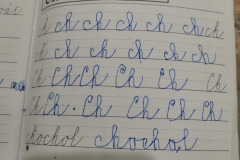 ch ch ch ch ch ch ch
ch ch ch ch ch ch
Ch Ch Ch Ch Ch Ch
Ch Ch. Ch Ch Ch Ch
chochol chochol